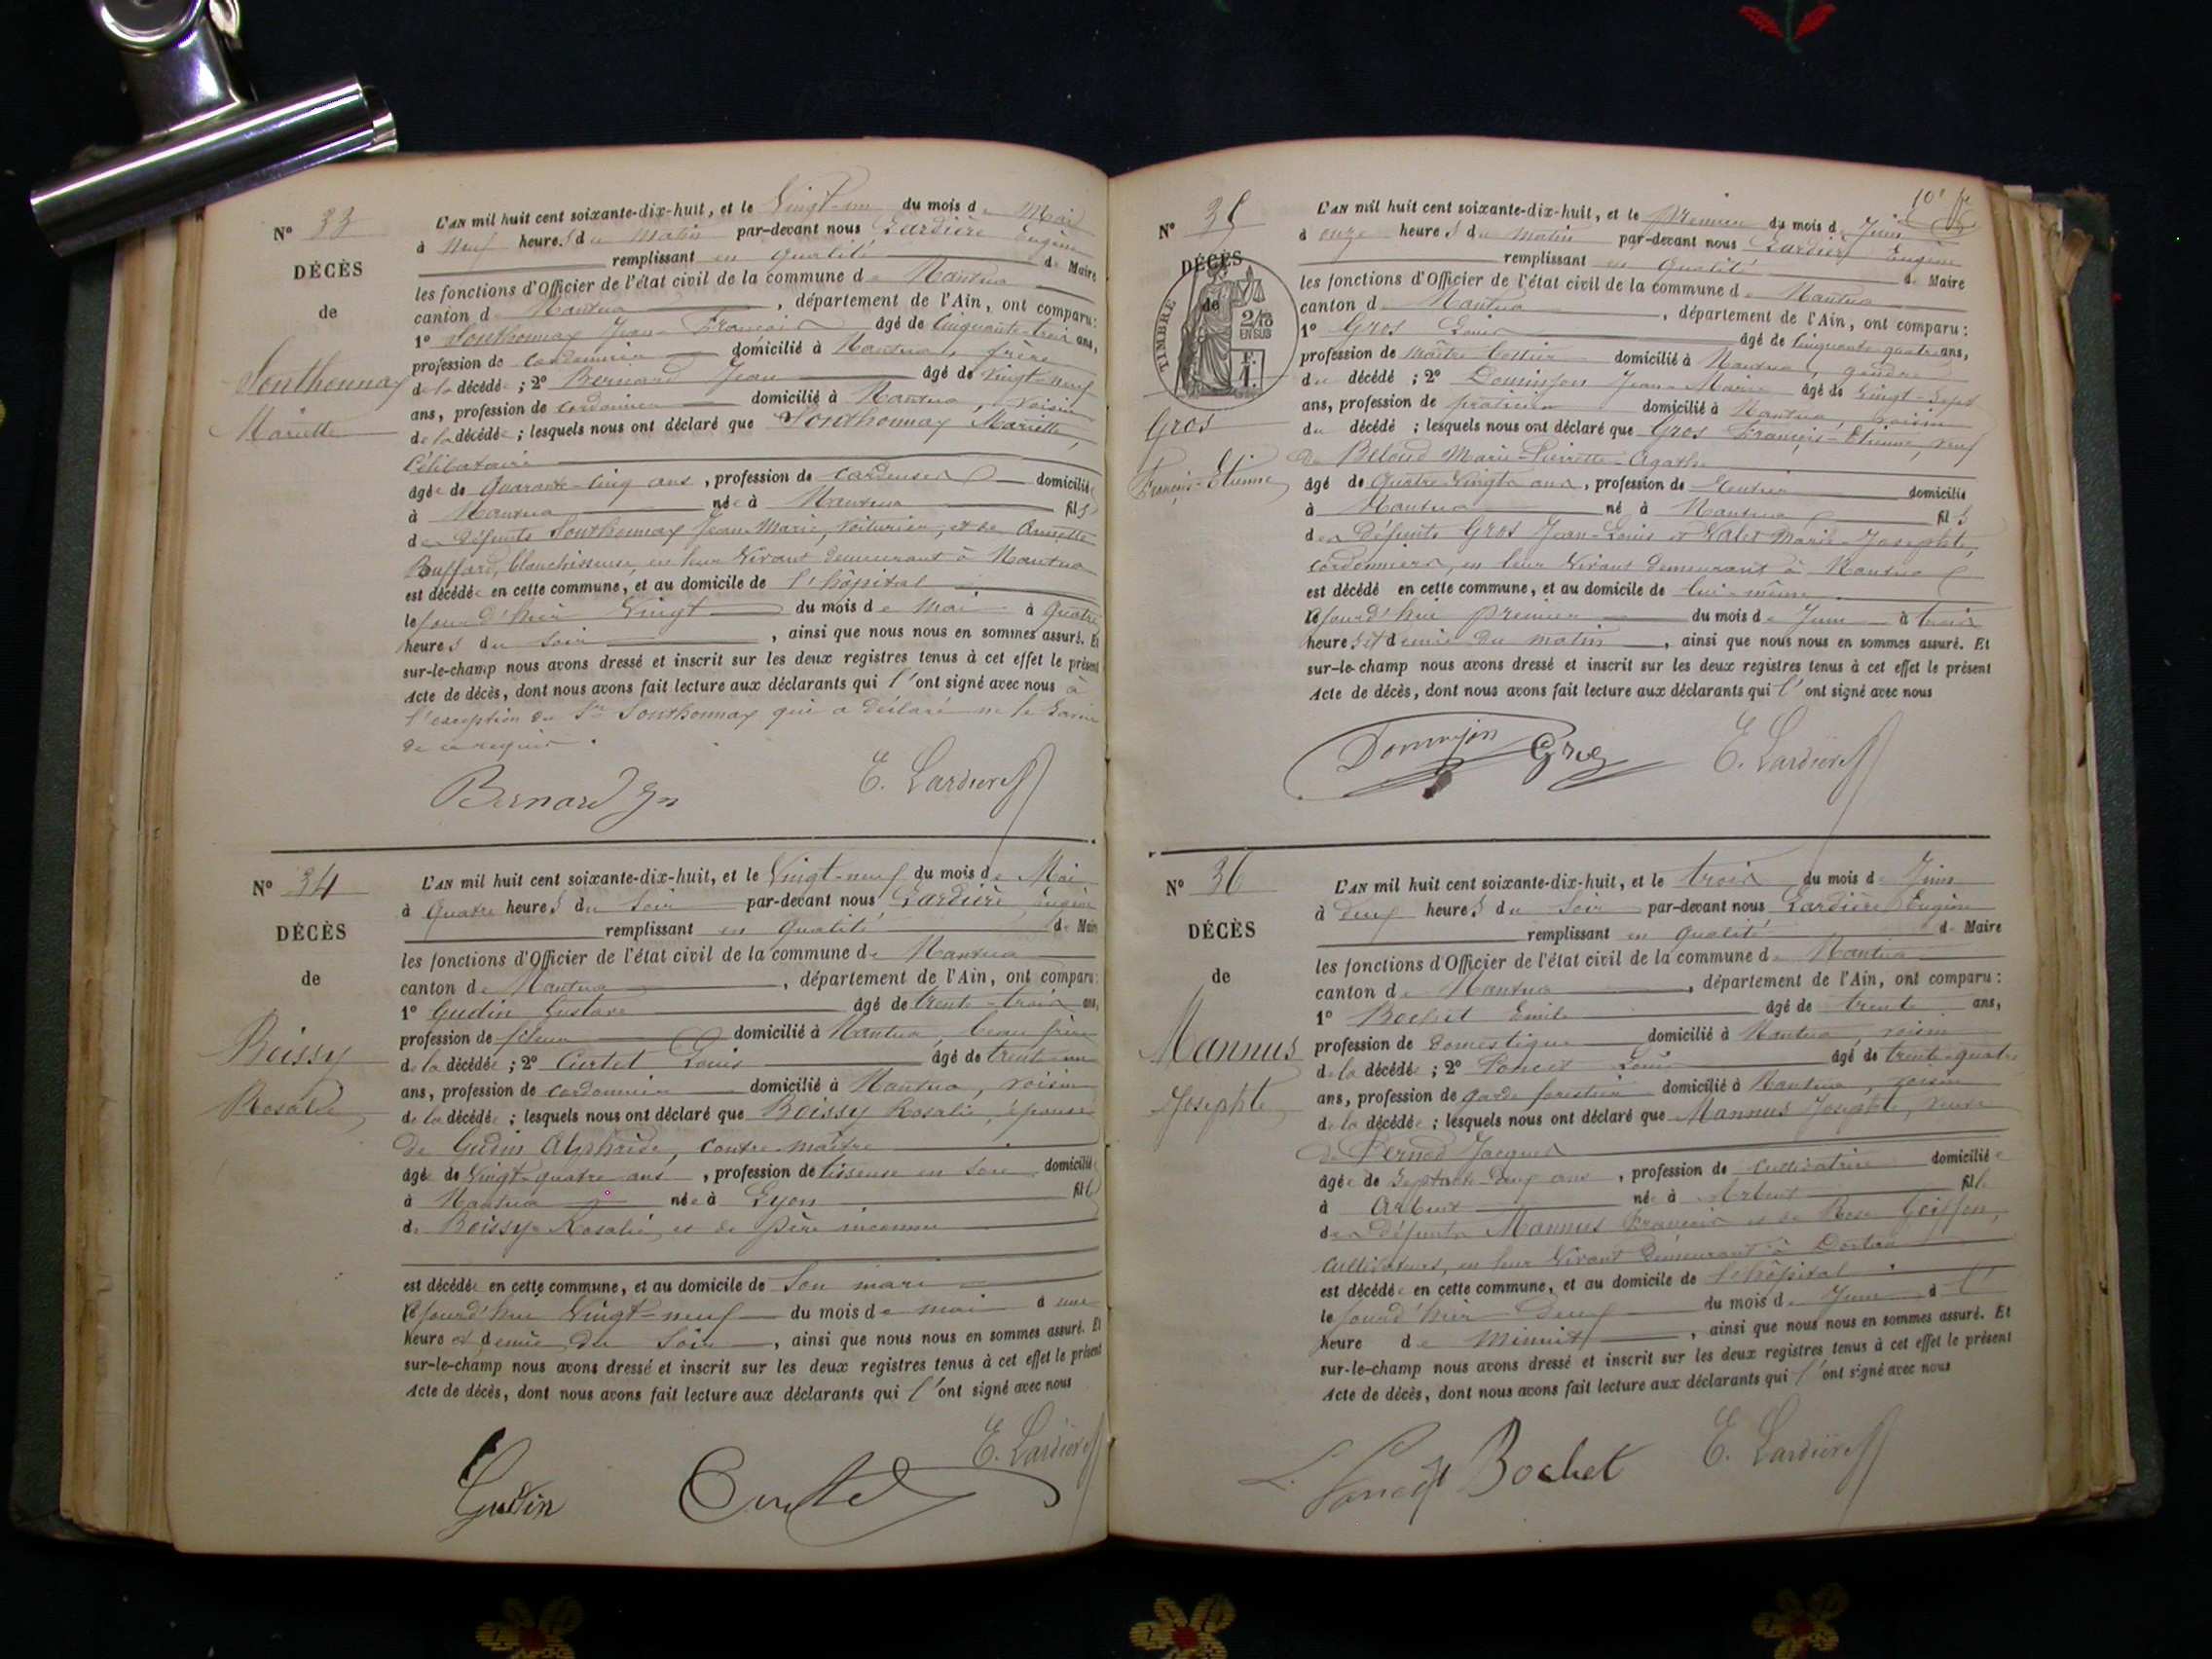 N° 33
DÉCÈS
de
Sonthonnax
Mariette
L'AN mil huit cent soixante-dix-huit, et le Vingt-un du mois de Mai
à Neuf heures du matin par-devant nous Lardière Eugène
remplissant en qualité de Maire
les fonctions d'Officier de l'état civil de la commune de Nantua
canton de Nantua, département de l'Ain, ont comparu:
1° Sonthonnax Jean-François âgé de Cinquante-trois ans,
profession de cordonnier domicilié à Nantua, frère
de la décédée; 2° Bernard Jean âgé de vingt-neuf
ans, profession de cordonnier domicilié à Nantua, voisin
de la décédée; lesquels nous ont déclaré que Sonthonnax Mariette,
Célibataire
âgée de Quarante-cinq ans, profession de cardeuse domiciliée
à Nantua née à Nantua fille
des défunts Sonthonnax Jean-Marie, voiturier, et de Annette
Buffard, blanchisseuse, en leur vivant demeurant à Nantua
est décédée en cette commune, et au domicile de l'hôpital
le jour d'hier Vingt du mois de Mai à quatre
heures du soir, ainsi que nous nous en sommes assuré. Et
sur-le-champ nous avons dressé et inscrit sur les deux registres tenus à cet effet le présent
Acte de décès, dont nous avons fait lecture aux déclarants qui l'ont signé avec nous à
l'exception du Sr Sonthonnax qui a déclaré ne le savoir
de ce requis.
Bernard Jn E. Lardière
N° 34
DÉCÈS
de
Boissy
Rosalie
L'AN mil huit cent soixante-dix-huit, et le Vingt-neuf du mois de Mai
à Quatre heures du soir par-devant nous Lardière Eugène
remplissant en qualité de Maire
les fonctions d'Officier de l'état civil de la commune de Nantua
canton de Nantua, département de l'Ain, ont comparu:
1° Gudin Gustave âgé de trente-trois ans,
profession de fileur domicilié à Nantua, beau frère
de la décédée; 2° Curtet Louis âgé de trente-un
ans, profession de cordonnier domicilié à Nantua, voisin
de la décédée; lesquels nous ont déclaré que Boissy Rosalie, épouse
de Gudin, contre-maître
âgée de Vingt-quatre ans, profession de tisseuse en soie domiciliée
à Nantua née à Lyon fille
de Boissy Rosalie, et de père inconnu
est décédée en cette commune, et au domicile de son mari
Cejourd'hui Vingt-neuf du mois de mai à une
heure et demie du soir, ainsi que nous nous en sommes assuré. Et
sur-le-champ nous avons dressé et inscrit sur les deux registres tenus à cet effet le présent
Acte de décès, dont nous avons fait lecture aux déclarants qui l'ont signé avec nous
Gudin Curtet E. Lardière
N° 35
DÉCÈS
de
TIMBRE
2/10
EN SUS
F.
1.
Gros
François-Etienne
L'AN mil huit cent soixante-dix-huit, et le premier du mois de Juin
à onze heures du matin par-devant nous Lardière Eugène
remplissant en qualité de Maire
les fonctions d'Officier de l'état civil de la commune de Nantua
canton de Nantua, département de l'Ain, ont comparu:
1° Gros Louis âgé de Cinquante-quatre ans,
profession de maître bottier domicilié à Nantua, gendre
du décédé; 2° Dominjon Jean-Marie âgé de Vingt-sept
ans, profession de praticien domicilié à Nantua, voisin
du décédé; lesquels nous ont déclaré que Gros François-Etienne, veuf
de Beloud Marie-Pierrette-Agathe
âgé de Quatre-Vingts ans, profession de Rentier domicilié
à Nantua né à Nantua fils
des défunts Gros Jean-Louis et Valet Marie-Josephte,
cordonniers, en leur vivant demeurant à Nantua
est décédé en cette commune, et au domicile de lui-même
Cejourd'hui premier du mois de Juin à trois
heures et demie du matin, ainsi que nous nous en sommes assuré. Et
sur-le-champ nous avons dressé et inscrit sur les deux registres tenus à cet effet le présent
Acte de décès, dont nous avons fait lecture aux déclarants qui l'ont signé avec nous
Dominjon Gros E. Lardière
N° 36
DÉCÈS
de
Mannus
Josephte
L'AN mil huit cent soixante-dix-huit, et le trois du mois de Juin
à deux heures du soir par-devant nous Lardière Eugène
remplissant en qualité de Maire
les fonctions d'Officier de l'état civil de la commune de Nantua
canton de Nantua, département de l'Ain, ont comparu:
1° Bochet Emile âgé de trente ans,
profession de Domestique domicilié à Nantua, voisin
de la décédée; 2° Poncet Louis âgé de trente-quatre
ans, profession de garde forestier domicilié à Nantua, voisin
de la décédée; lesquels nous ont déclaré que Mannus Josephte, veuve
de Bernod Jacques
âgée de Septante-deux ans, profession de cultivatrice domiciliée
à Arbent née à Arbent fille
des défunts Mannus François et de Rose,
cultivateurs, en leur vivant demeurant à Dortan
est décédée en cette commune, et au domicile de l'hôpital
le jour d'hier deux du mois de Juin à l'
heure de minuit, ainsi que nous nous en sommes assuré. Et
sur-le-champ nous avons dressé et inscrit sur les deux registres tenus à cet effet le présent
Acte de décès, dont nous avons fait lecture aux déclarants qui l'ont signé avec nous
L. Poncet Bochet E. Lardière